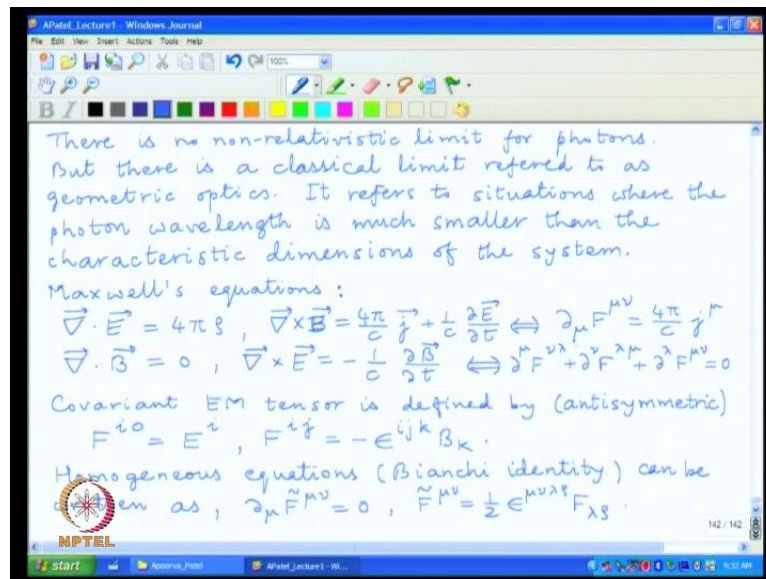 APatel_Lecture1 - Windows Journal
File Edit View Insert Actions Tools Help
100%
B I
There is no non-relativistic limit for photons.
But there is a classical limit refered to as
geometric optics. It refers to situations where the
photon wavelength is much smaller than the
characteristic dimensions of the system.
Maxwell's equations :
∇⃗·E⃗ = 4πρ , ∇⃗×B⃗ = 4π/c j⃗ + 1/c ∂E⃗/∂t ⇔ ∂_μ F^{μν} = 4π/c j^μ
∇⃗·B⃗ = 0 , ∇⃗×E⃗ = - 1/c ∂B⃗/∂t ⇔ ∂^μ F^{νλ} + ∂^ν F^{λμ} + ∂^λ F^{μν} = 0
Covariant EM tensor is defined by (antisymmetric)
F^{i0} = E^i , F^{ij} = -ϵ^{ijk} B_k .
Homogeneous equations (Bianchi identity) can be
as , ∂_μ F̃^{μν} = 0 , F̃^{μν} = 1/2 ϵ^{μνλρ} F_{λρ} .
NPTEL
142 / 142
start Apoorva_Patel APatel_Lecture1 - Wi... 4:32 AM